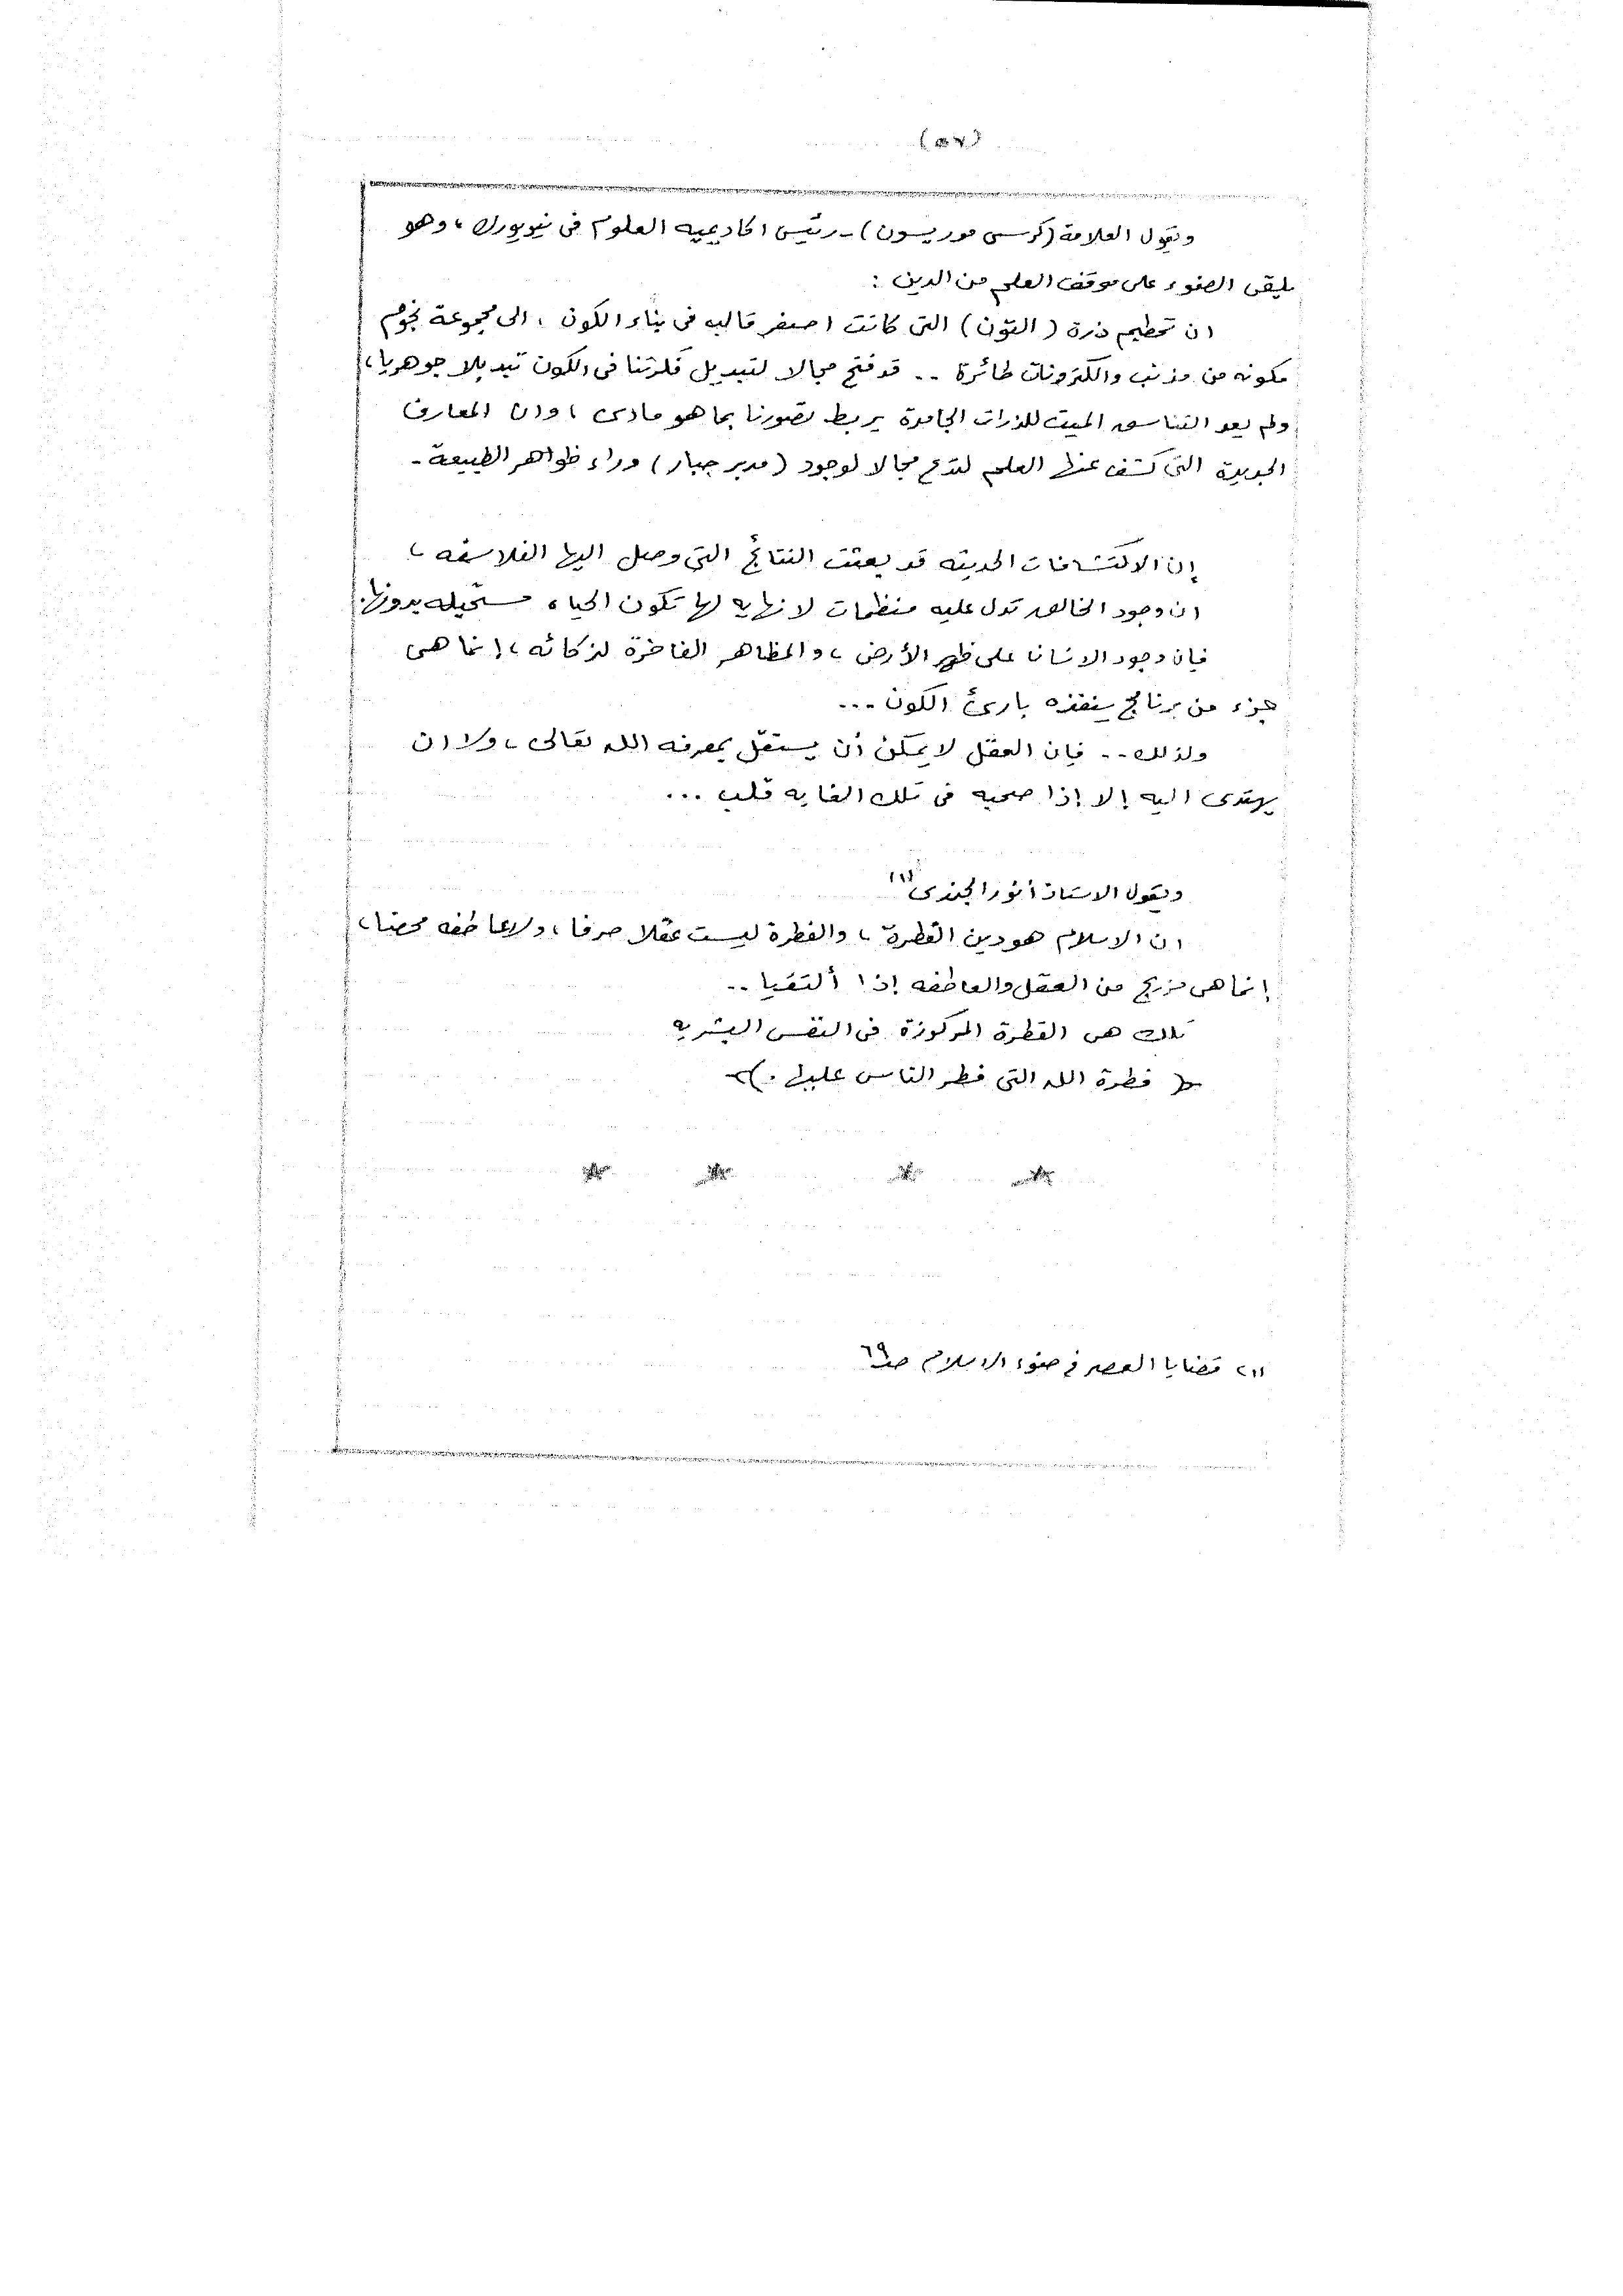 (٥٧)
ويقول العلامة (كرسى موريسون) - رئيس اكاديميه العلوم فى نيويورك ، وهو
يلقى الضوء على موقف العلم من الدين :
ان تحطيم ذرة ( التون ) التى كانت اصغر قالب فى بناء الكون ، الى مجموعة نجوم
مكونه من مذنب والكترونات طائرة .. قد فتح مجالا لتبديل فكرتنا فى الكون تبديلا جوهريا ،
ولم يعد التناسق الميت للذرات الجامدة يربط تصورنا بما هو مادى ، وان المعارف
الجديدة التى كشف عنها العلم لتدع مجالا لوجود ( مدبر جبار ) وراء ظواهر الطبيعة -
إن الاكتشافات الحديثه قد بعثت النتائج التى وصل اليها الفلاسفه ،
ان وجود الخالق تدل عليه منظمات لا نهايه لها تكون الحياه مستحيله بدونها .
فإن وجود الانسان على ظهر الأرض ، والمظاهر الفاخرة لذكائه ، إنما هى
جزء من برنامج ينفذه بارئ الكون ...
ولذلك .. فإن العقل لا يمكن أن يستقل بمعرفه الله تعالى ، ولا ان
يهتدى اليه إلا إذا صحبه فى تلك الغايه قلب ...
ويقول الاستاذ أنور الجندى (١)
ان الاسلام هو دين الفطرة ، والفطرة ليست عقلا صرفا ، ولا عاطفه محضا ،
إنما هى مزيج من العقل والعاطفه إذا ألتقيا ..
تلك هى الفطرة المركوزة فى النفس البشريه
﴿ فطرة الله التى فطر الناس عليها . ﴾
* * * *
(١) قضايا العصر فى ضوء الاسلام صـ ٦٩